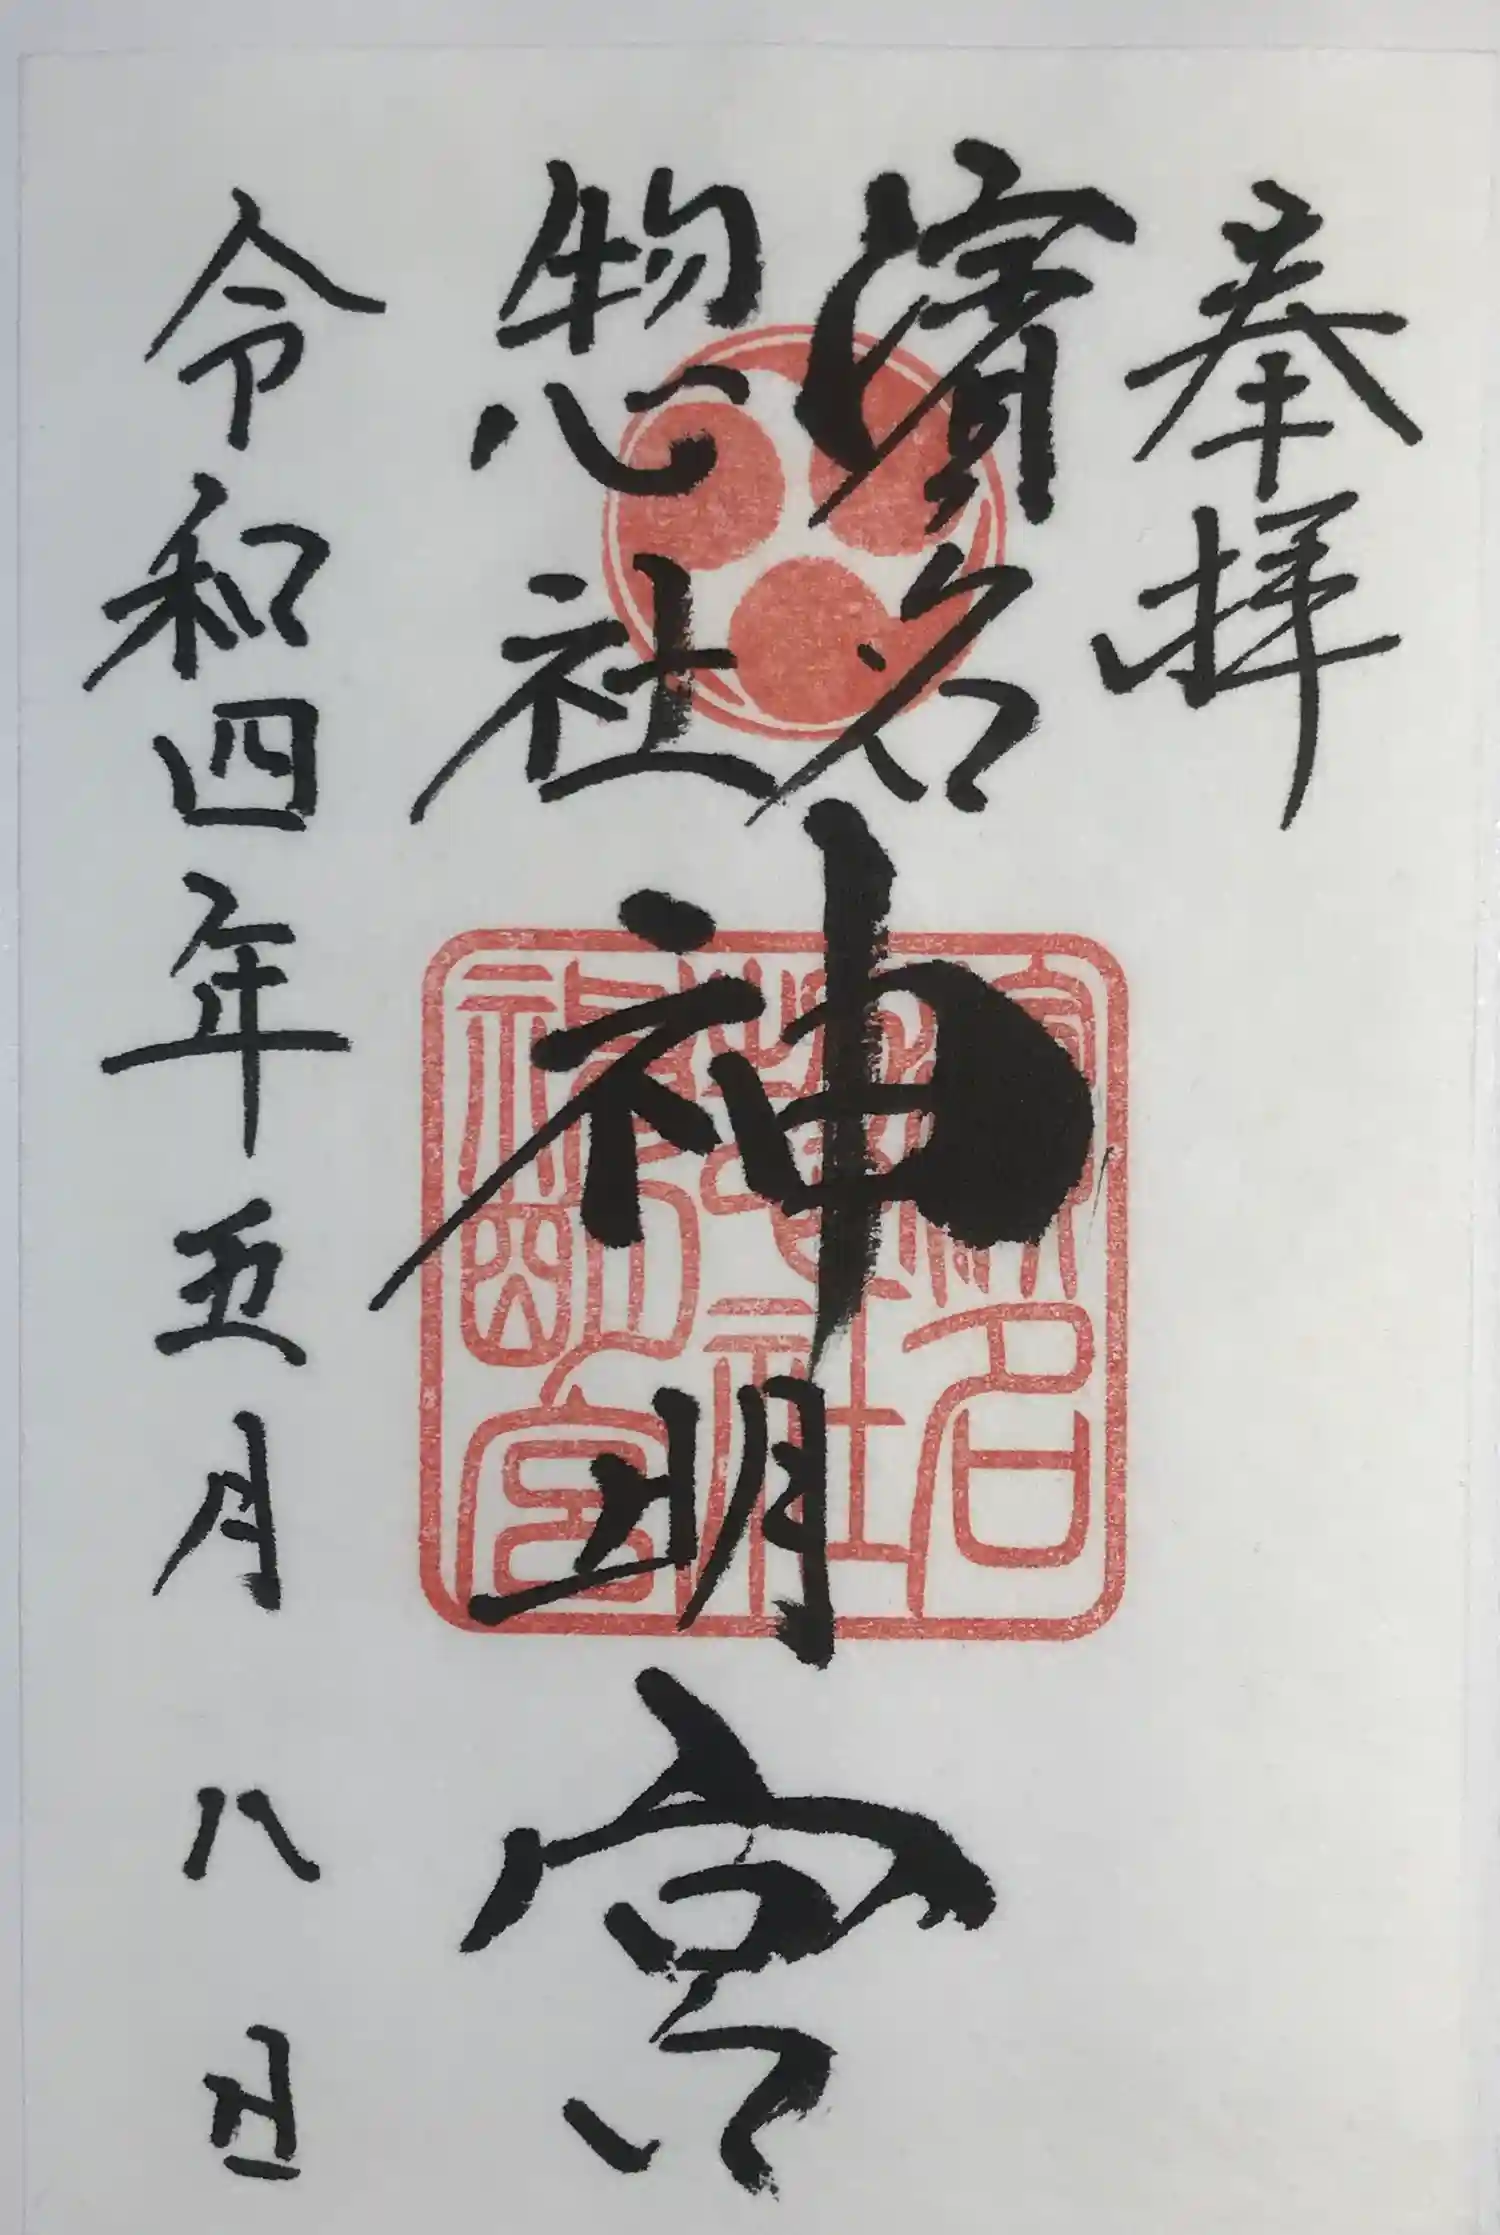 奉拝
濱名
惣社
神明宮
令和四年五月八日
濱名
惣社
神明宮